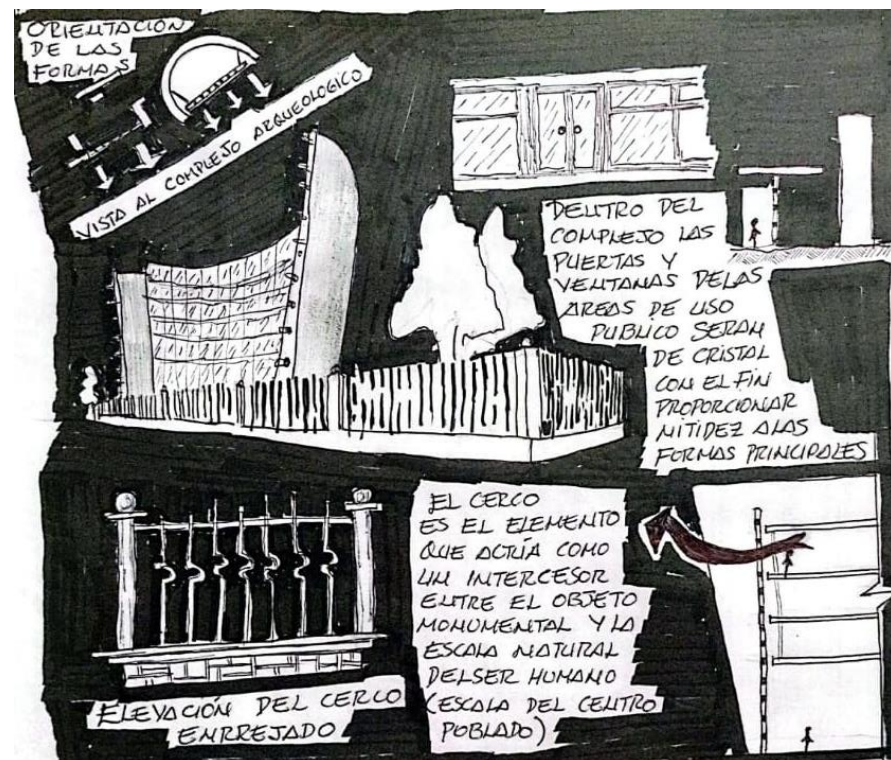 ORIENTACIÓN
DE LAS
FORMAS
VISTA AL COMPLEJO ARQUEOLOGICO
DENTRO DEL
COMPLEJO LAS
PUERTAS Y
VENTANAS DELAS
AREAS DE USO
PUBLICO SERAN
DE CRISTAL
CON EL FIN
PROPORCIONAR
NITIDEZ A LAS
FORMAS PRINCIPALES
EL CERCO
ES EL ELEMENTO
QUE ACTÚA COMO
UN INTERCESOR
ENTRE EL OBJETO
MONUMENTAL Y LA
ESCALA NATURAL
DEL SER HUMANO
(ESCALA DEL CENTRO
POBLADO)
ELEVACIÓN DEL CERCO
ENRREJADO